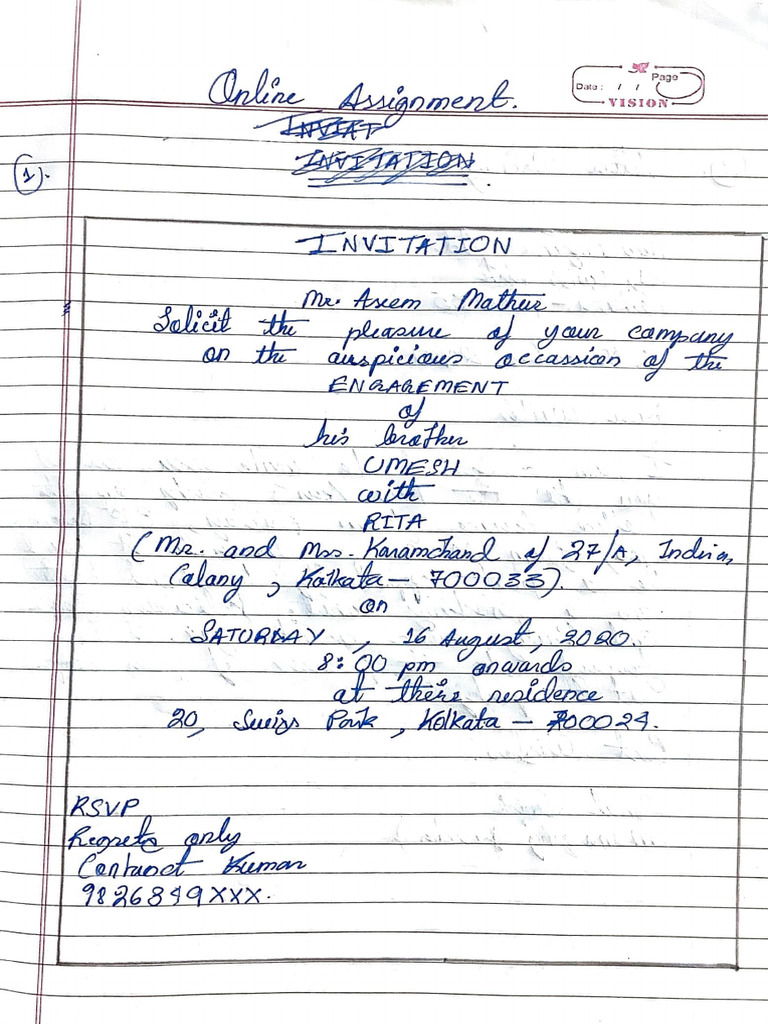 Online Assignment.
Page
Date: / /
VISION
INVIAT
INVITATION
(1).
INVITATION
Mr. Aseem Mathur
Solicit the pleasure of your company
on the auspicious occassion of the
ENGAGEMENT
of
his brother
UMESH
with
RITA
(Mr. and Mrs. Karamchand of 27/A, Indira,
Colany, Kolkata - 700033).
on
SATURDAY, 16 August, 2020.
8:00 pm onwards
at their residence
20, Swiss Park, Kolkata - 700024.
RSVP
Regrets only
Contanct Kumar
9826849XXX.